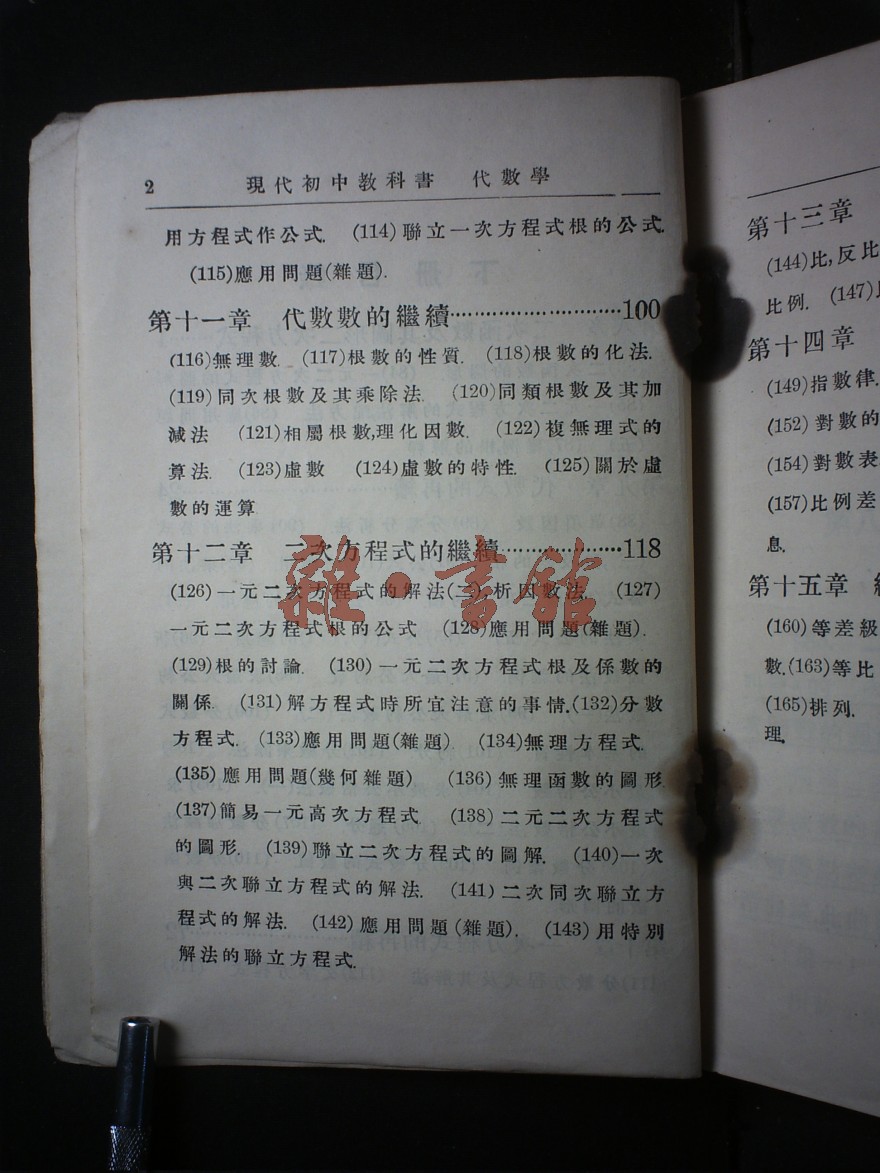 2 現代初中教科書 代數學
用方程式作公式. (114)聯立一次方程式根的公式.
(115)應用問題(雜題).
第十一章 代數數的繼續……………………100
(116)無理數. (117)根數的性質. (118)根數的化法.
(119)同次根數及其乘除法. (120)同類根數及其加
減法 (121)相屬根數,理化因數. (122)複無理式的
算法. (123)虛數 (124)虛數的特性. (125)關於虛
數的運算
第十二章 二次方程式的繼續………………118
(126)一元二次方程式的解法(二),析因數法. (127)
一元二次方程式根的公式 (128)應用問題(雜題).
(129)根的討論. (130)一元二次方程式根及係數的
關係. (131)解方程式時所宜注意的事情.(132)分數
方程式. (133)應用問題(雜題) (134)無理方程式.
(135)應用問題(幾何雜題) (136)無理函數的圖形.
(137)簡易一元高次方程式. (138)二元二次方程式
的圖形. (139)聯立二次方程式的圖解. (140)一次
與二次聯立方程式的解法. (141)二次同次聯立方
程式的解法. (142)應用問題(雜題). (143)用特別
解法的聯立方程式.
雜·書館
第十三章
(144)比,反比
比例. (147)
第十四章
(149)指數律.
(152)對數的
(154)對數表
(157)比例差
息.
第十五章
(160)等差級
數.(163)等比
(165)排列.
理.